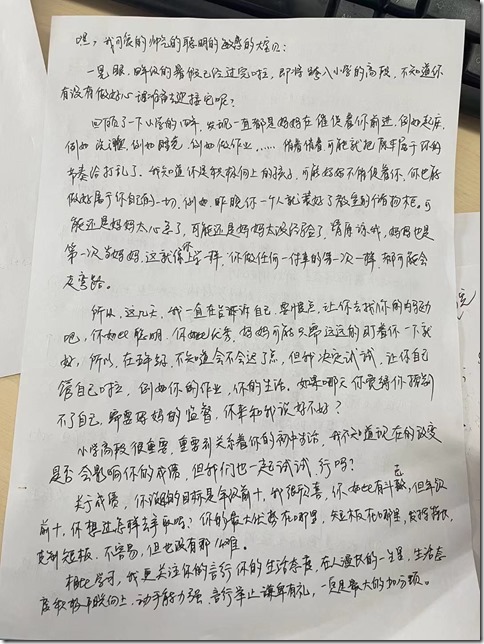 嘿，我可爱的帅气的聪明的敏感的大宝：
一晃眼，四年级的暑假已经过完啦，即将踏入小学的高段，不知道你
有没有做好心理准备迎接它呢？
回顾了一下小学的四年，发现一直都是妈妈在催促着你前进，例如起床，
例如洗漱，例如刷毛，例如做作业……催着催着可能就把原本属于你的
节奏给打乱了。我知道你是积极向上的孩子，可能妈妈不催促着你，你也能
做好属于你自己的一切，例如，昨晚你一个人就装好了教室的储物柜。可
能还是妈妈太心急了，可能还是妈妈太没经验了，请原谅我，妈妈也是
第一次当妈妈，这就像你上学一样，你做任何一件事的第一次一样，都可能会
走弯路。
所以，这几天，我一直在告诉自己，要慢点，让你去找你的内驱动
吧，你如此聪明，你如此优秀，妈妈可能只要远远的盯着你一下就
好，所以，在五年级，不知道会不会迟了点，但我决定试试，让你自己
管自己啦，例如你的作业，你的生活。如果哪天你觉得你控制
不了自己，需要妈妈的监督，你来和我说好不好？
小学高段很重要，重要到关系着你的初中生活，我不知道现在的改变
是否会影响你的成绩，但我们也一起试试，行吗？
关于成绩，你说的目标是年级前十，我很欣喜，你如此有斗志，但年级
前十，你想过怎样去争取吗？你的最大优势在哪里，短板在哪里，发挥特长，
克制短板，不容易，但也没有那么难。
相比学习，我更关注你的言行你的生活态度，在人漫长的一生里，生活态
度积极平稳向上，动手能力强，言行举止谦卑有礼，一定是最大的加分项。